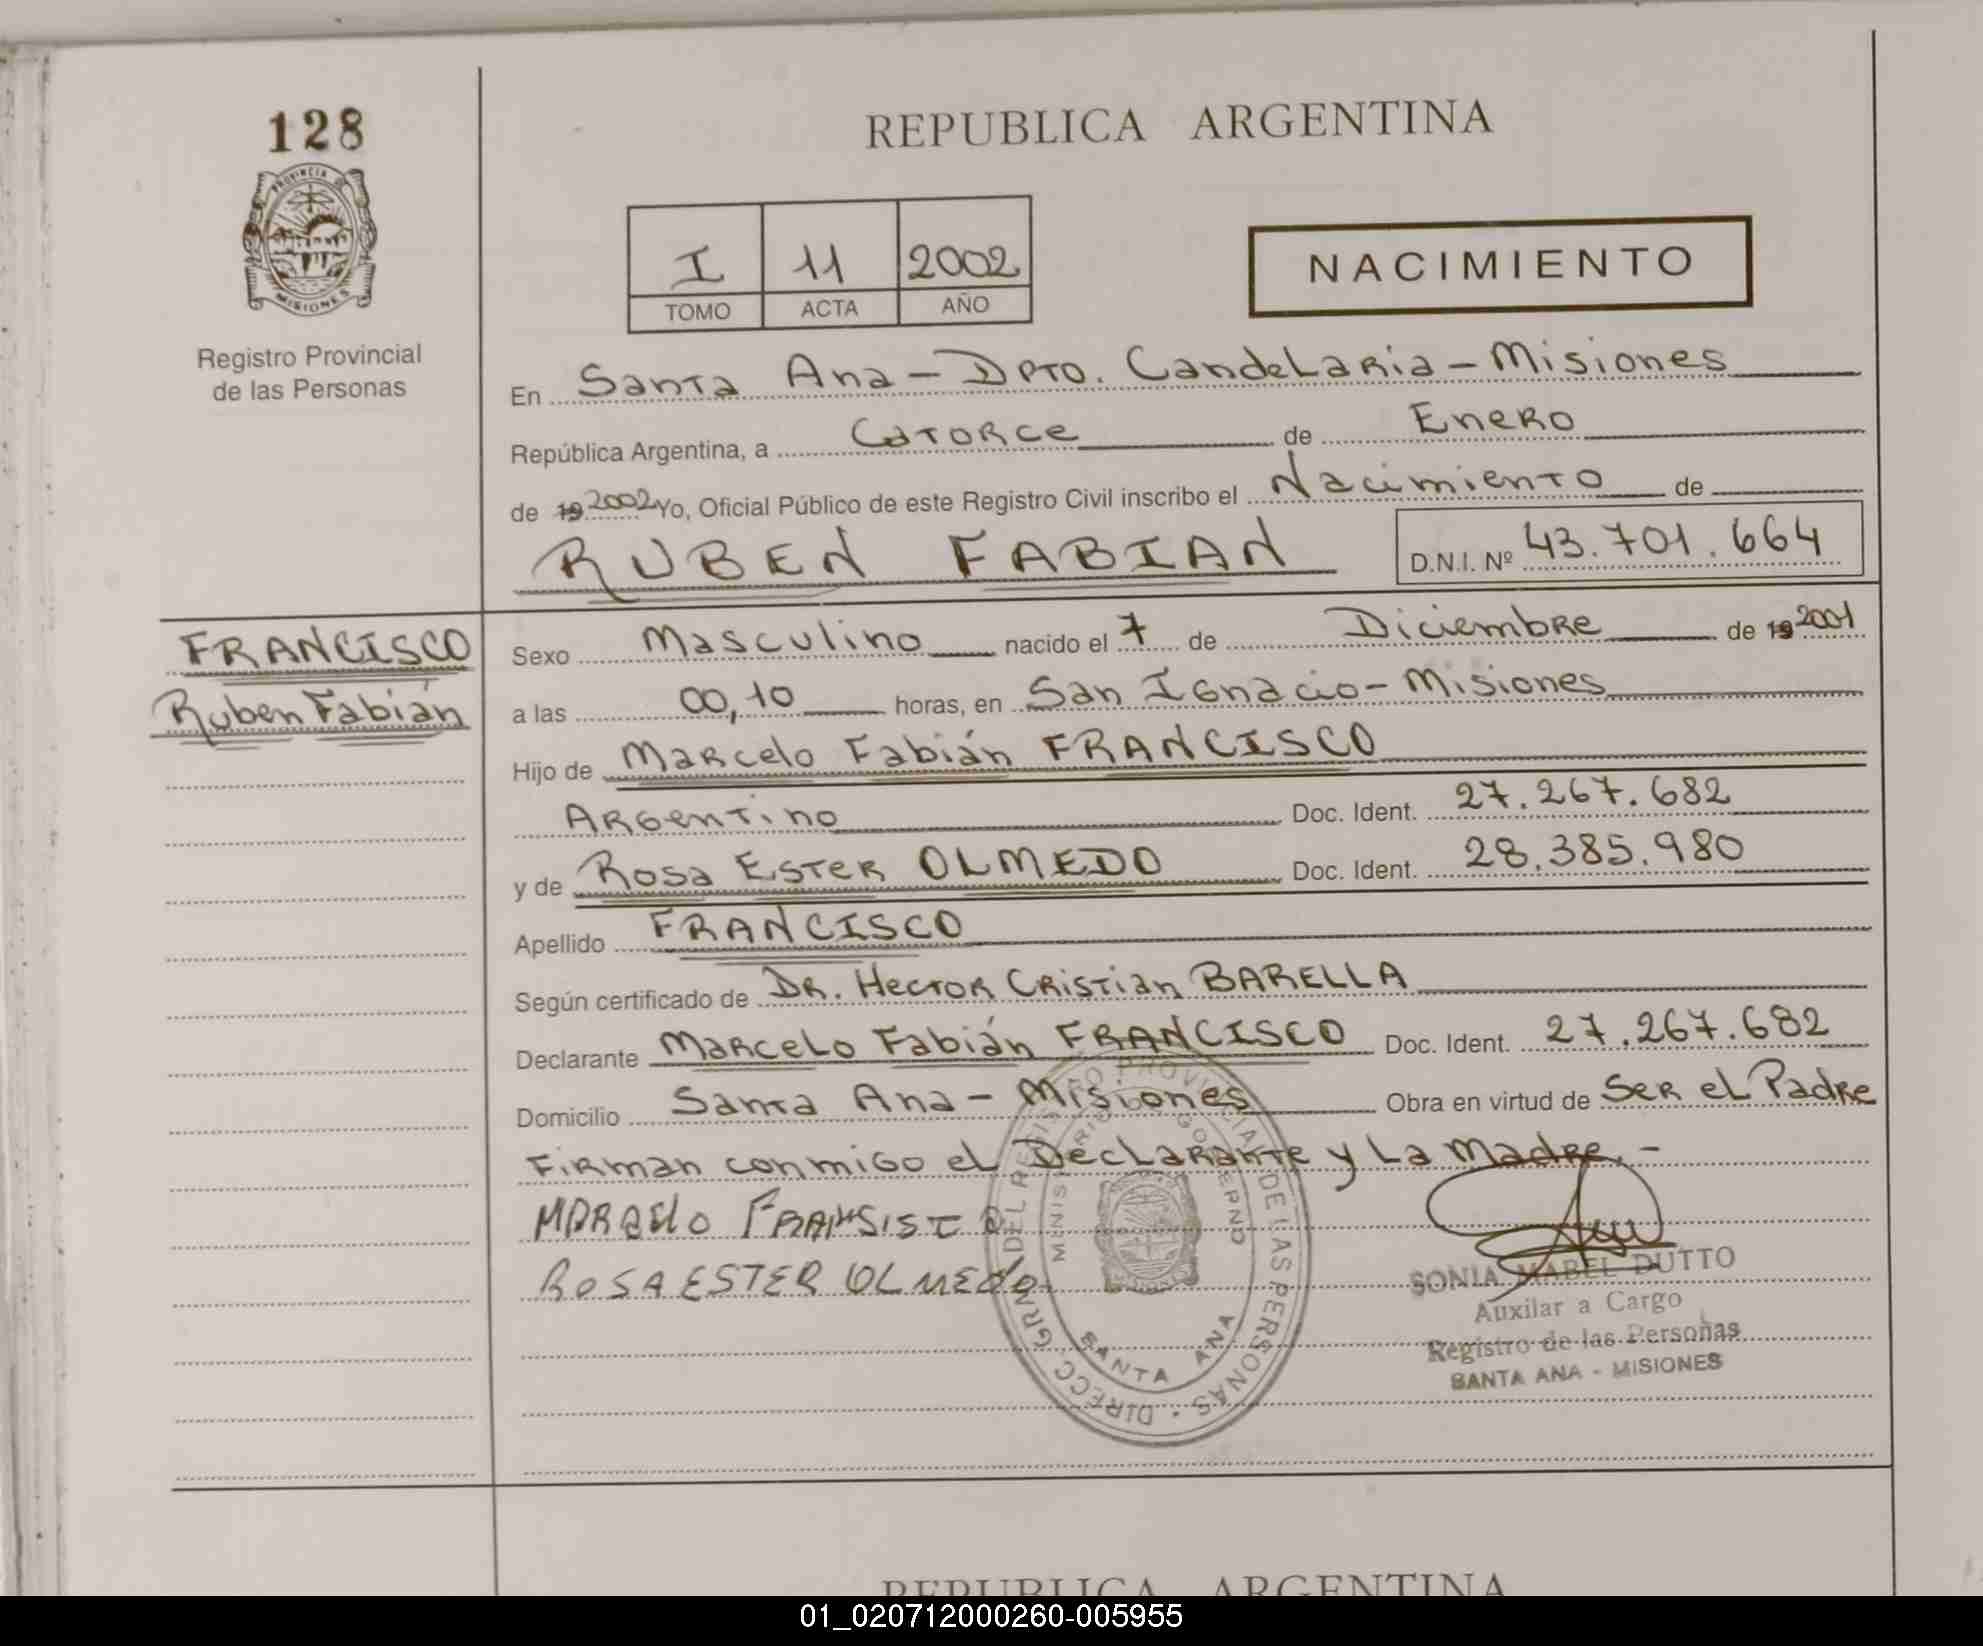 128
PROVINCIA DE
MISIONES
Registro Provincial
de las Personas
REPUBLICA ARGENTINA
I 11 2002
TOMO ACTA AÑO
NACIMIENTO
En Santa Ana - Dpto. Candelaria - Misiones
República Argentina, a Catorce de Enero
de 19 2002 Yo, Oficial Público de este Registro Civil inscribo el Nacimiento de
RUBEN FABIAN D.N.I. Nº 43.701.664
FRANCISCO
Ruben Fabián
Sexo Masculino nacido el 7 de Diciembre de 19 2001
a las 00,10 horas, en San Ignacio - Misiones
Hijo de Marcelo Fabián FRANCISCO
Argentino Doc. Ident. 27.267.682
y de Rosa Ester OLMEDO Doc. Ident. 28.385.980
Apellido FRANCISCO
Según certificado de DR. Hector Cristian BARELLA
Declarante Marcelo Fabián FRANCISCO Doc. Ident. 27.267.682
Domicilio Santa Ana - Misiones Obra en virtud de Ser el Padre
Firman conmigo el Declarante y La Madre. -
ROSA ESTER OLMEDO
DIRECC. GRAL. DEL REGISTRO PROVINCIAL DE LAS PERSONAS
MINISTERIO GOBIERNO
SANTA ANA
SONIA MABEL DUTTO
Auxilar a Cargo
Registro de las Personas
SANTA ANA - MISIONES
REPUBLICA ARGENTINA
01_020712000260-005955